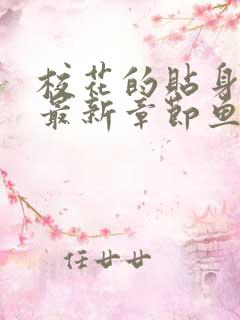 校花的贴身
最新章节鱼
任廿廿